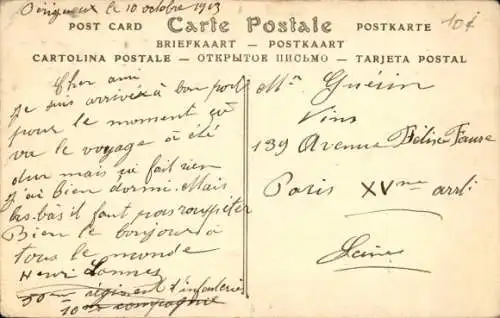 Périgueux le 10 octobre 1913
10f
POST CARD Carte Postale POSTKARTE
BRIEFKAART — POSTKAART
CARTOLINA POSTALE — ОТКРЫТОЕ ПИСЬМО — TARJETA POSTAL
Cher ami
Je suis arrivéx à bon port
pour le moment ça
va le voyage à été
dur mais ça fait rien
J'ai bien dormi. Mais
las-bas il faut pas rouspéter
Bien le bonjour à
tous le monde
Henri Lannes
50em régiment d'infanterie
10em compagnie
Mr Guérin
Vins
139 Avenue Félix Faure
Paris XVme arrdt
Seine